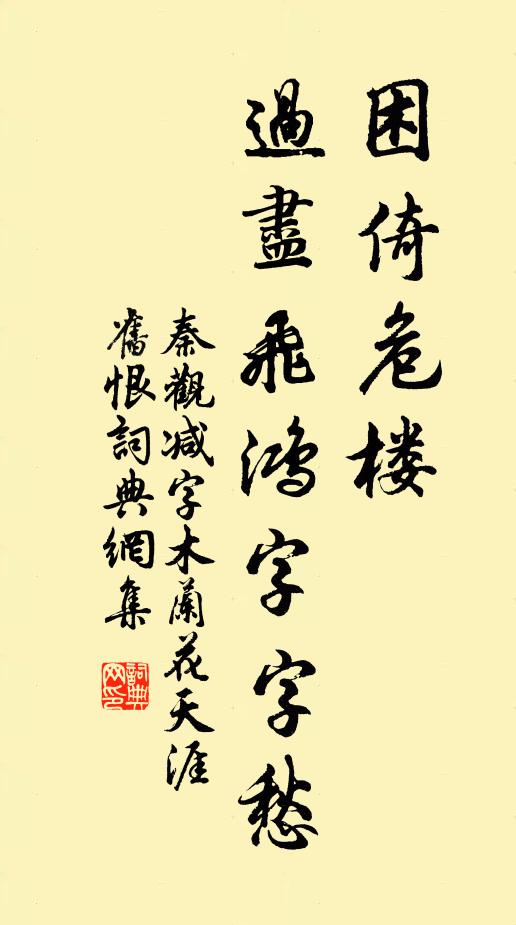 困倚危楼
過盡飛鴻字字愁
秦觀减字木蘭花天涯
舊恨詞典網集
詞典网印